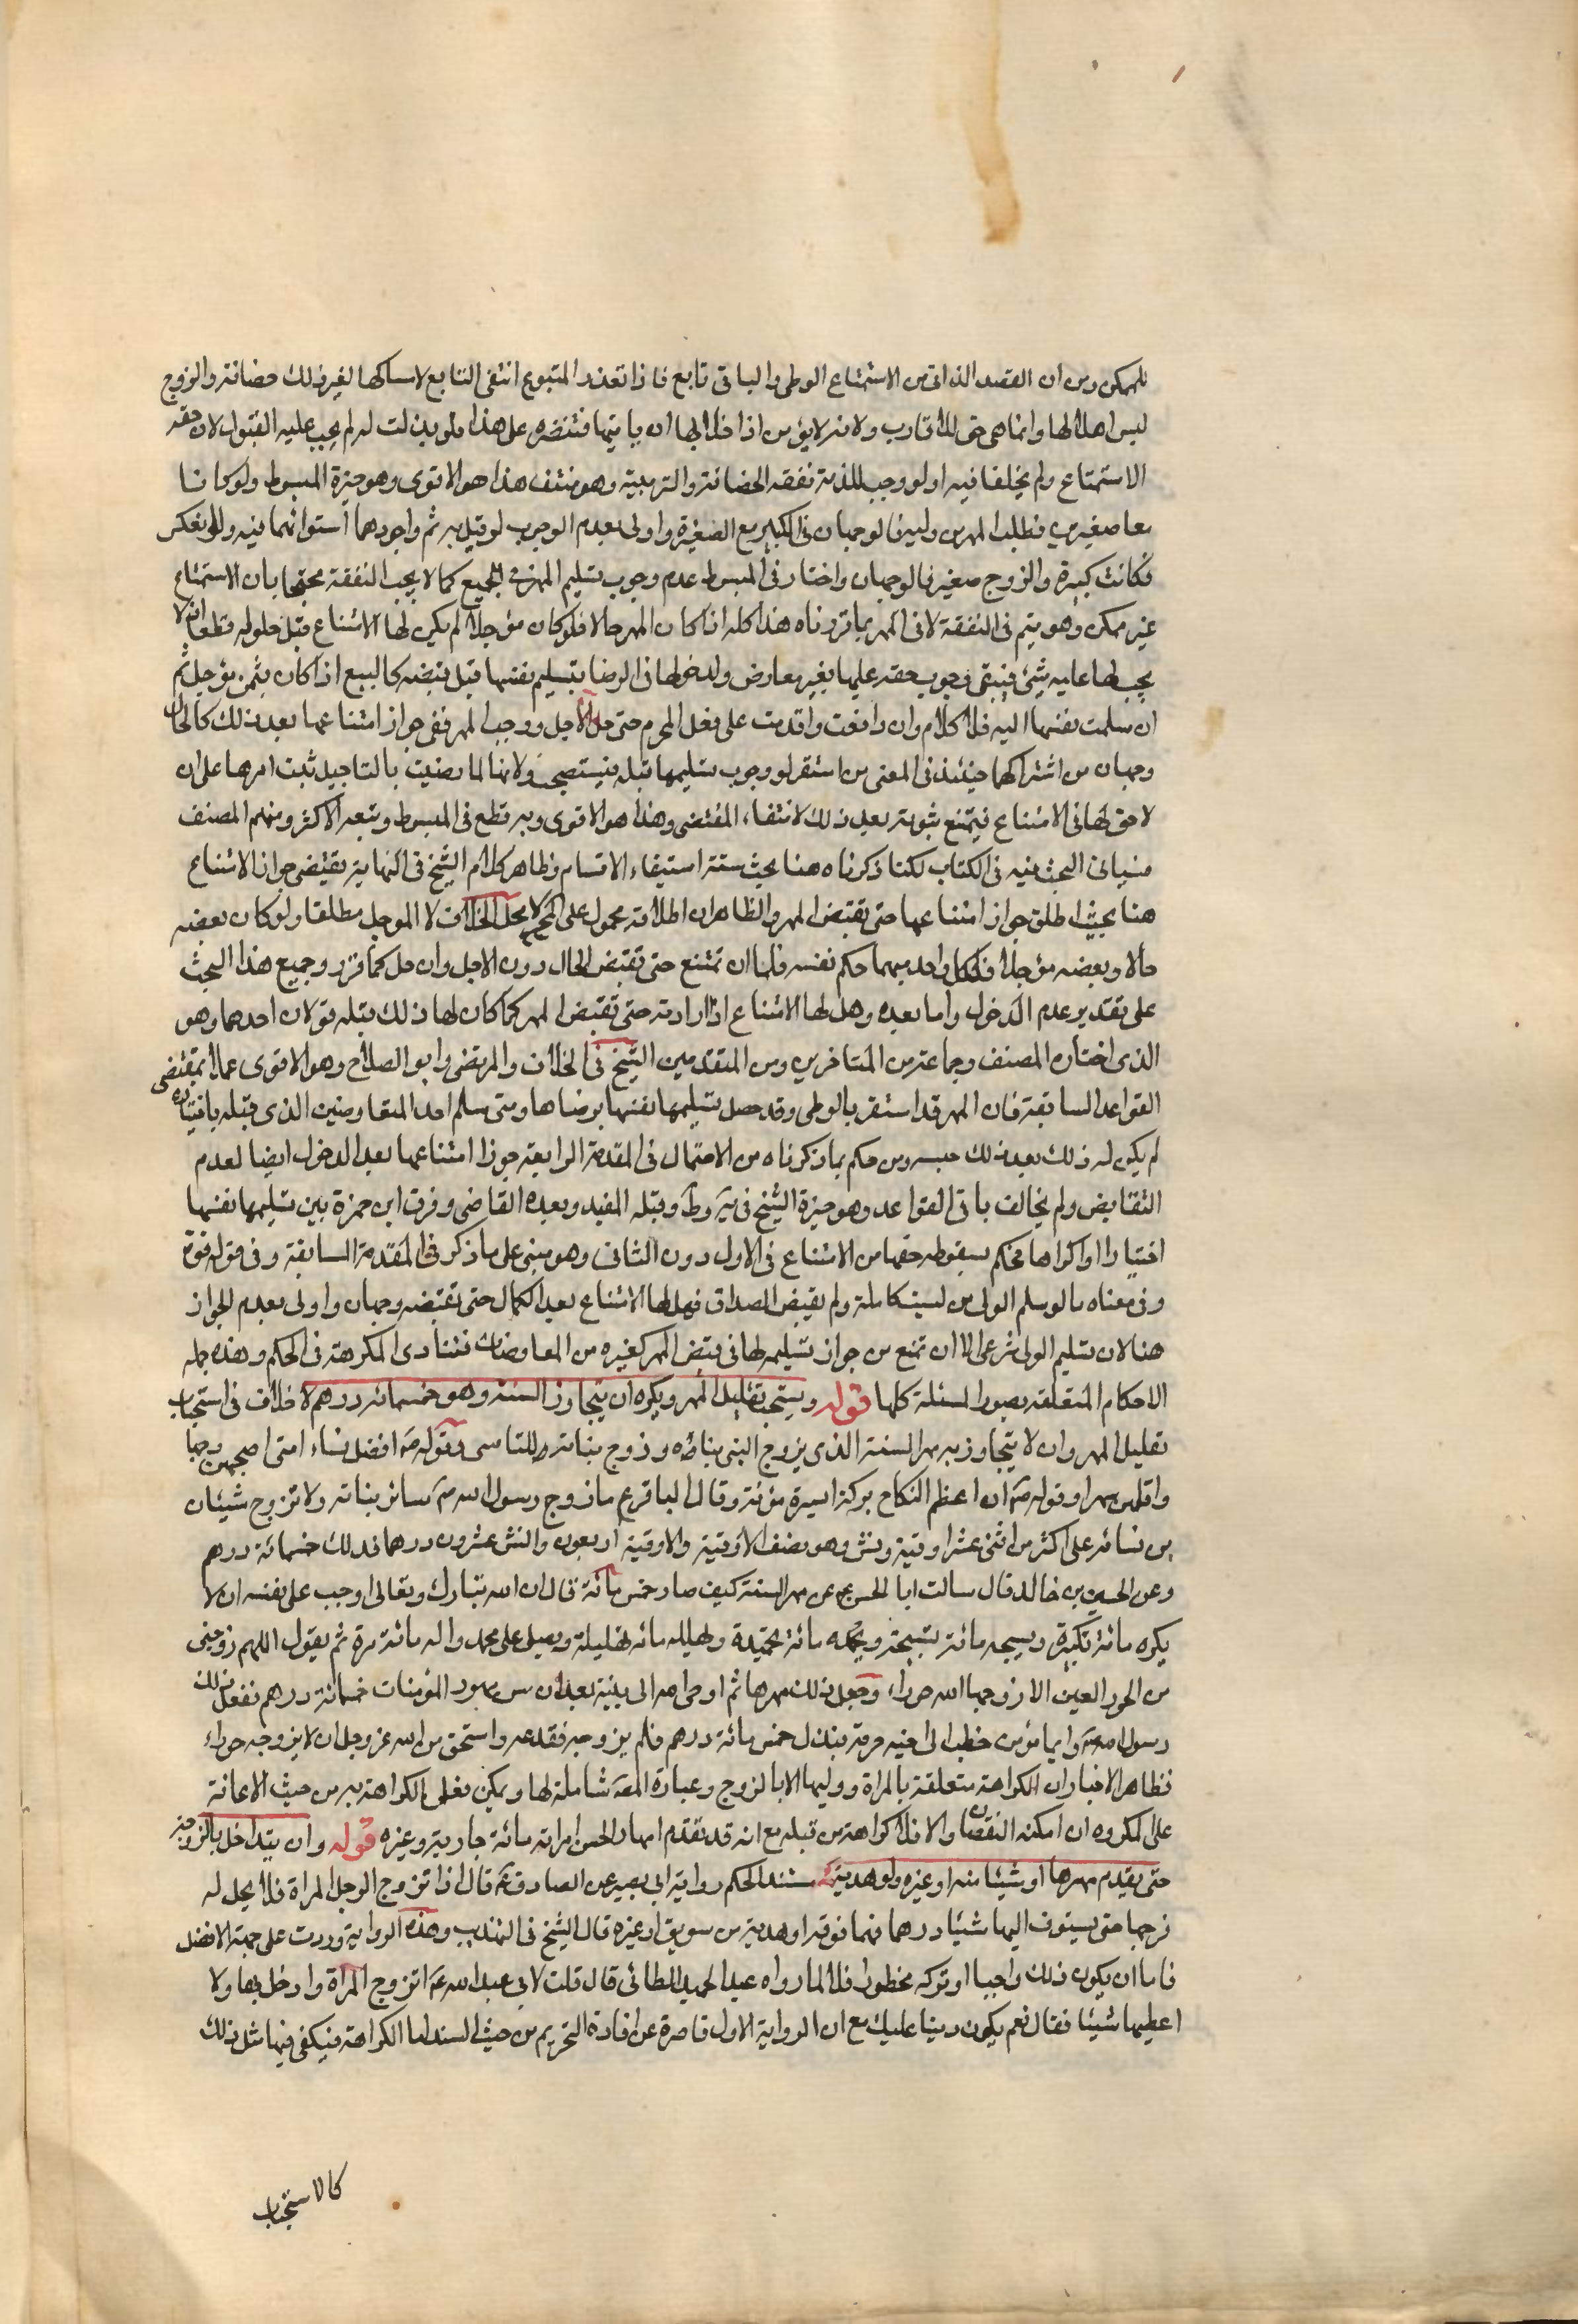 للممكن ومن ان القصد الذاتى من الاستمتاع الوطى والباقى تابع فاذا تعذر المتبوع انتفى التابع لامساكها لغير ذلك حضانة والزوج
ليس اهلا لها وانما هى حق للاقارب ولانه لايؤمن اذا خلا بها ان ياتيها فتتضرر على هذا فلو بذلت له لم يجب عليه القبول لان حقه
الاستمتاع ولم يخلقا فيه اولو وجب للذمة نفقه الحضانة والتربية وهو منتف هذا هو الاقوى وهو خيرة المبسوط ولو كانا
معا صغيرين فطلب المهر من وليه فالوجهان فى الكبير مع الصغيرة واولى بعدم الوجوب لو قيل به ثم واجودهما استوائهما فيه ولو انعكس
فكانت كبيرة والزوج صغير فالوجهان واختار فى المبسوط عدم وجوب تسليم المهر فى الجميع كما لا يجب النفقة محتجا بان الاستمتاع
غير ممكن وهو يتم فى النفقة لا فى المهر بما قررناه هذا كله اذا كان المهر حالا فلو كان مؤجلا لم يكن لها الامتناع قبل حلوله قطعا اذ لا
يجب لها عليه شئ فيبقى وجوب حقه عليها بغير معارض ولدخولها فى الرضا بتسليم نفسها قبل قبضه كالبيع اذا كان بثمن مؤجل ثم
ان سلمت نفسها اليه فلا كلام وان دافعت واقدمت على فعل المحرم حتى حل الاجل ووجب المهر ففى جواز امتناعها بعد ذلك كالحال
وجهان من اشتراكهما حينئذ فى المعنى من استقرار وجوب تسليمها قبله فيستصحب ولانها لما رضيت بالتاجيل ثبت امرها على ان
لا حق لها فى الامتناع فيمتنع ثبوته بعد ذلك لانتفاء المقتضى وهذا هو الاقوى وبه قطع فى المبسوط وتبعه الاكثر ومنهم المصنف
فسياتى البحث فيه فى الكتاب لكنا ذكرناه هنا بحيث ستة استيفاء الاقسام وظاهر كلام الشيخ فى النهاية يقتضى جواز الامتناع
هنا بحيث اطلق جواز امتناعها حتى تقبض المهر والظاهر ان اطلاقه محمول على محل الخلاف لا الموجل مطلقا ولو كان بعضه
حالا وبعضه مؤجلا فلكل واحد منهما حكم نفسه فلها ان تمتنع حتى تقبض الحال دون الاجل وان حل كما قرر وجميع هذا البحث
على تقدير عدم الدخول واما بعده وهل لها الامتناع اذا ارادته حتى تقبض المهر كما كان لها ذلك قبله قولان احدهما وهو
الذى اختاره المصنف وجماعة من المتاخرين ومن المتقدمين الشيخ فى الخلاف والمرتضى وابو الصلاح وهو الاقوى عملا بمقتضى
القواعد السابقة فان المهر قد استقر بالوطى وقد حصل تسليمها نفسها برضاها ومتى سلم احد المتعاوضين الذى قبله باختياره
لم يكن له ذلك بعد ذلك حبسه ومن حكم بما ذكرناه من الاحتمال فى المقدمة الرابعة جوز امتناعها بعد الدخول ايضا لعدم
التقابض ولم يخالف باقى القواعد وهو خيرة الشيخ فى يه وط وقبله المفيد وبعده القاضى وفرق ابن حمزة بين تسليمها نفسها
اختيارا او اكراها محكم بسقوط حقها من الامتناع فى الاول دون الثانى وهو مبنى على ما ذكر فى المقدمة السابقة وفى قوله قوة
وفى معناه ما لو سلم الولى من ليست كاملة ولم يقبض الصداق فهل لها الامتناع بعد الكمال حتى تقبضه وجهان واولى بعدم الجواز
هنا لان تسليم الولى شرعى الا ان تمنع من جواز تسليمه لها فى قبض المهر كغيره من المعاوضات فتتادى المكرهة فى الحكم وهذه جملة
الاحكام المتعلقه بصور المسئلة كلها قوله ويستحب تقليل المهر ويكره ان يتجاوز السنة وهو خمسمائة درهم لا خلاف فى استحباب
تقليل المهر وان لا يتجاوز به مهر السنة الذى يزوج النبى بناؤه وزوج بناته به للتاسى وقوله ص افضل نساء امتى اصبحهن وجها
واقلهن مهرا وقوله ص ان اعظم النكاح بركة ايسره مؤنة وقال الباقر ع ما زوج رسول الله ص سائر بناته ولا تزوج شيئا
من نسائه على اكثر من اثنى عشر اوقية ونش وهو نصف الاوقية والاوقية اربعون والنش عشرون درهما فذلك خمسمائة درهم
وعن الحسين بن خالد قال سالت ابا الحسن ع عن مهر السنة كيف صار خمس مائة قال ان الله تبارك وتعالى اوجب على نفسه ان لا
يكبره مائة تكبيرة ويسبحه مائة تسبيحة ويحمده مائة تحميدة ويهلله مائه تهليلة ويصلى على محمد واله مائة مرة ثم يقول اللهم زوجنى
من الحور العين الا زوجها الله حوراء وجعل ذلك مهرها ثم اوحى الله الى نبيه بعد ان سن مهور المؤمنات خمسمائة درهم ففعل ذلك
رسول الله ص وايما مؤمن خطب الى اخيه حرمة فبذل خمس مائة درهم فلم يزوجه فقد عقه واستحق من الله عز وجل ان لا يزوجه حوراء
فظاهر الاخبار ان الكراهة متعلقة بالمراة ووليها لا بالزوج وعبارة المص شاملة لها ويمكن تعلق الكراهة به من حيث الاعانة
على المكروه ان امكنه النقصان والا فلا كراهة من قبله مع انه قد تقدم امهار الحسن امراته مائة جارية وغيره قوله وان يتداخل بالزوجة
حتى يقدم مهرها او شيئا منه او غيره ولو هدية مستند الحكم رواية ابى بصير عن الصادق ع قال اذا تزوج الرجل المراة فلا يحل له
فرجها حتى يسوق اليها شيئا درهما فما فوقه او هدية من سويق او غيره قال الشيخ فى التهذيب وهذه الرواية وردت على جهة الافضل
فاما ان يكون ذلك واجبا او تركه محظورا فلا لما رواه عبد الحميد الطائى قال قلت لابى عبد الله ع اتزوج المراة وادخل بها ولا
اعطيها شيئا فقال نعم يكون دينا عليك مع ان الرواية الاولى قاصرة عن افادة التحريم من حيث السند اما الكراهة فيكفى فيها مثل ذلك
كالاستحباب